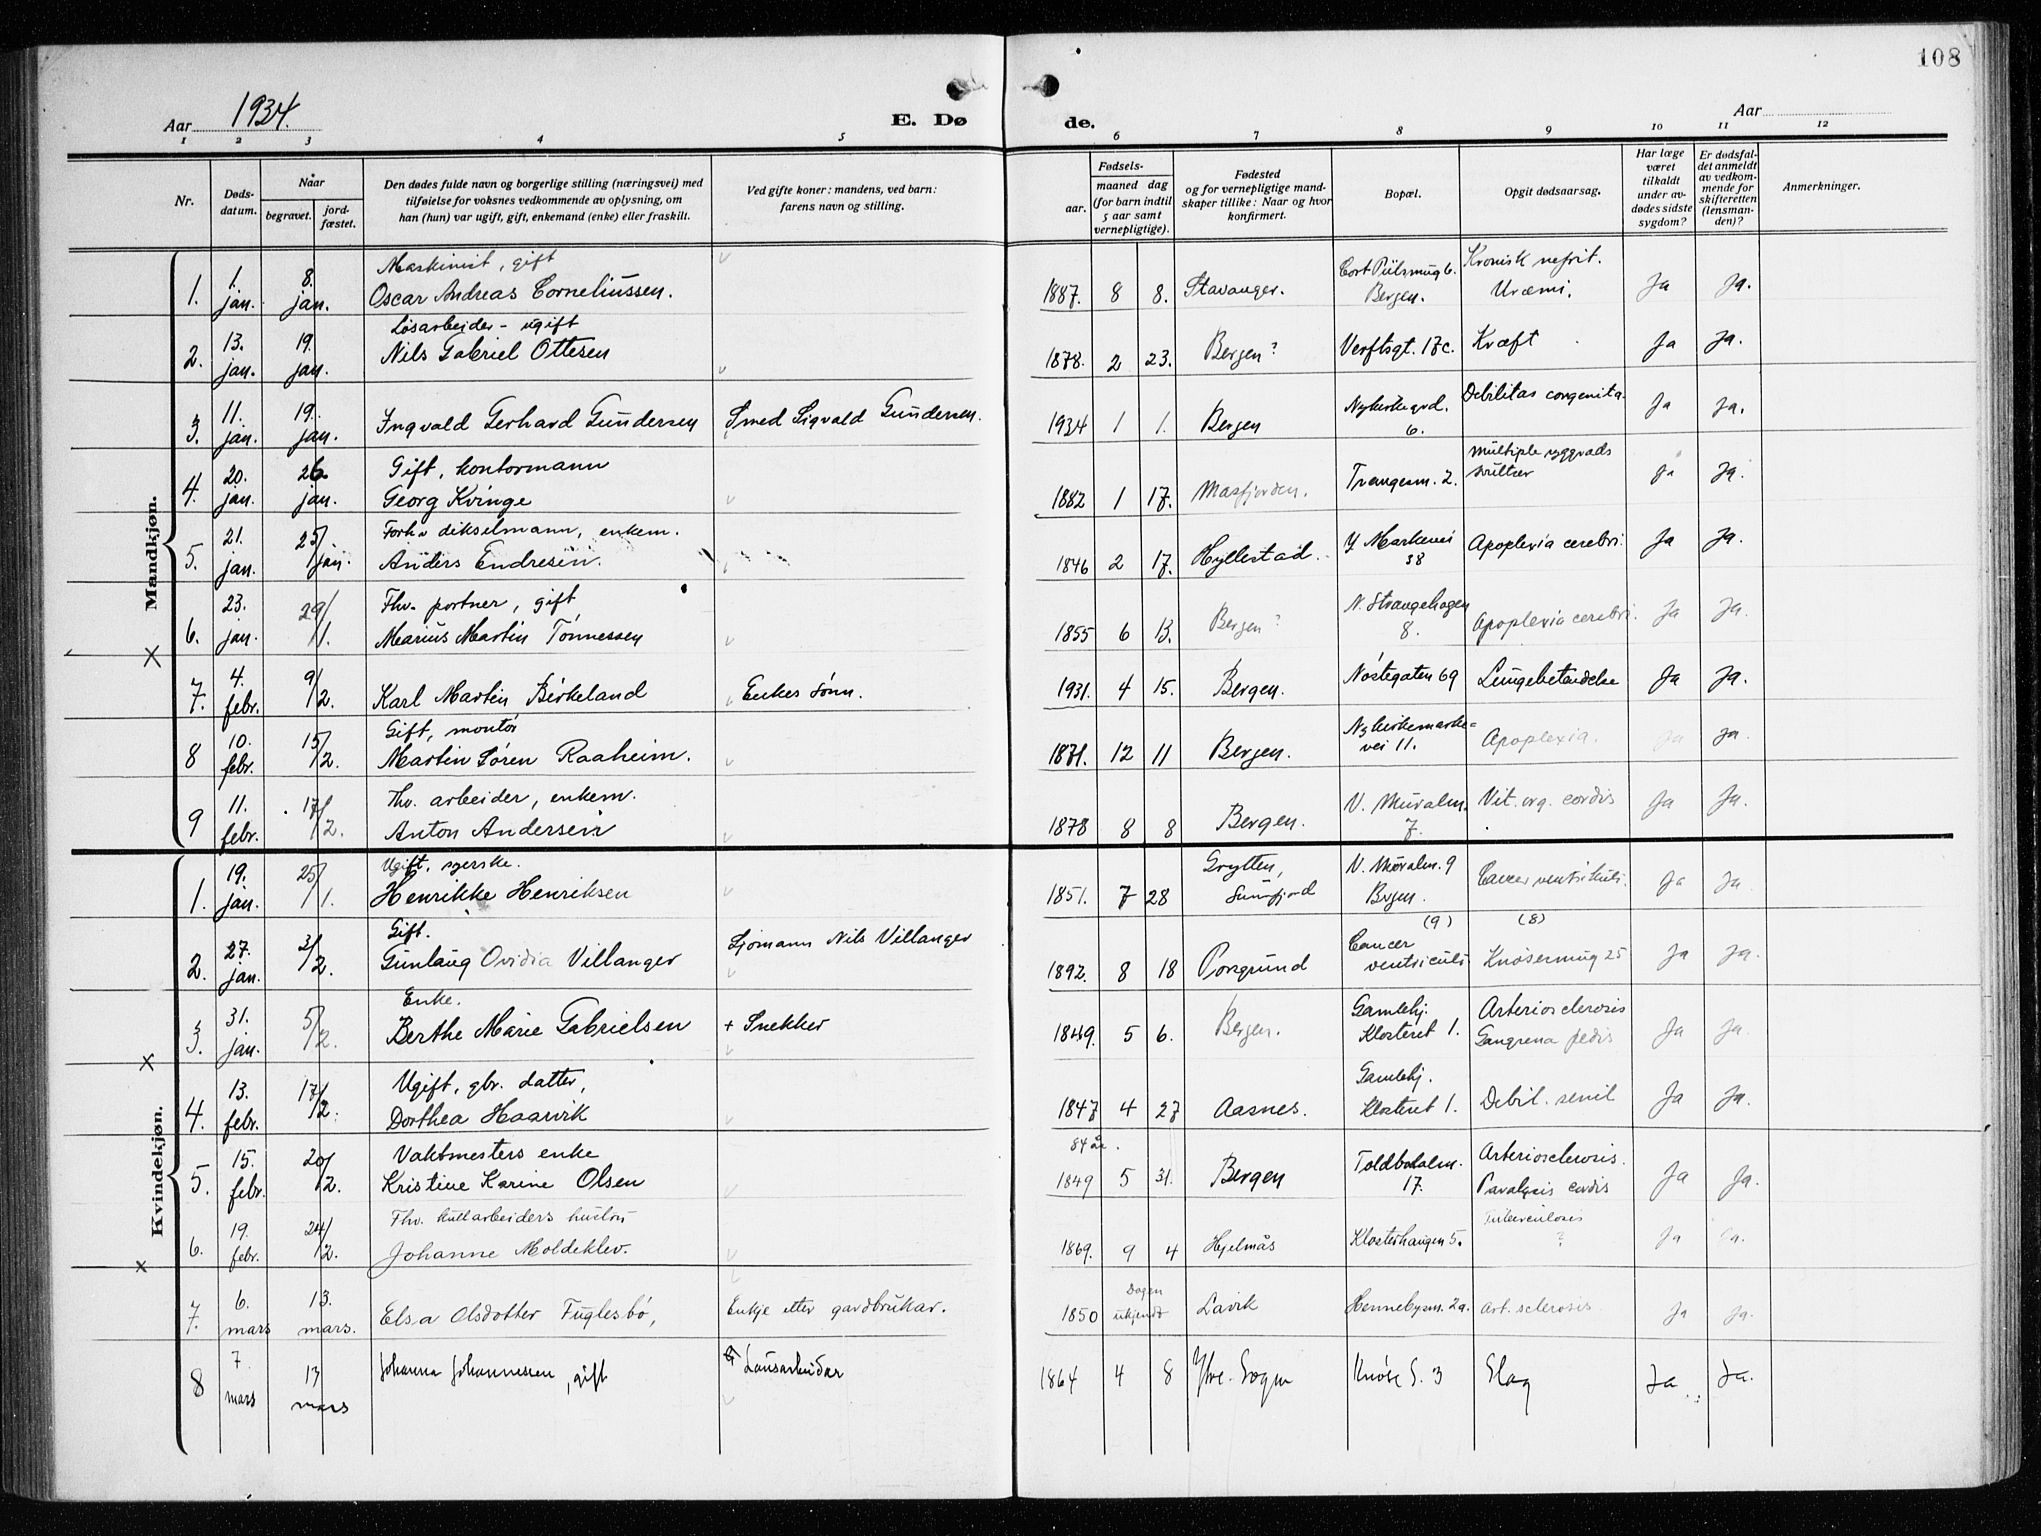 108
Aar 1934.
E. Dø
de.
Aar
1 2 3 4 5 6 7 8 9 10 11 12
Nr.
Døds-
datum.
Naar
begravet.
jord-
fæstet.
Den dødes fulde navn og borgerlige stilling (næringsvei) med
tilføielse for voksnes vedkommende av oplysning, om
han (hun) var ugift, gift, enkemand (enke) eller fraskilt.
Ved gifte koner: mandens, ved barn:
farens navn og stilling.
Fødsels-
aar.
maaned dag
(for barn indtil
5 aar samt
vernepligtige).
Fødested
og for vernepligtige mand-
skaper tillike: Naar og hvor
konfirmert.
Bopæl.
Opgit dødsaarsag.
Har læge
været
tilkaldt
under av-
dødes sidste
sygdom?
Er dødsfal-
det anmeldt
av vedkom-
mende for
skifteretten
(lensman-
den)?
Anmerkninger.
Mandkjøn.
1. 1. jan. 8. jan. Maskinist, gift
Oscar Andreas Corneliussen. 1887. 8 8. Stavanger. Cort Piilsmug 6. Bergen. Kronisk nefrit. Uræmi. Ja Ja.
2. 13. jan. 19. jan. Løsarbeider - ugift
Nils Gabriel Ottesen 1878. 2 23. Bergen? Verftsgt. 17c. Kræft Ja Ja.
3. 11. jan. 19. jan. Ingvald Gerhard Gundersen Smed Sigvald Gundersen. 1934 1 1. Bergen Nykirkegrd. 6. Debilitas congenita. Ja Ja.
4. 20. jan. 26. jan. Gift, kontormann
Georg Kvinge 1882 1 17. Masfjorden. Trangesm. 2. Multiple ryggrads svulster Ja Ja.
5. 21. jan. 25/ jan. Forh.v. dikselmann, enkem.
Anders Endresen. 1846 2 17. Hyllestad. Y Markevei 38 Apoplexia cerebri. Ja Ja.
6. 23. jan. 29/1. Fhv. portner, gift
Marius Martin Tønnessen 1855 6 13. Bergen? N. Strangehagen 8. Apoplexia cerebri. Ja Ja.
7. 4. febr. 9/2. Karl Martin Birkeland Enkes sønn. 1931. 4 15. Bergen. Nøstegaten 69 Lungebetendelse Ja Ja.
8 10. febr. 15/2. Gift, montør
Martin Søren Raaheim. 1871. 12 11 Bergen. Nykirkemarke-
vei 11. Apoplexia. Ja Ja.
9 11. febr. 17/2. Fhv. arbeider, enkem.
Anton Andersen 1878 8 8 Bergen. V. Muralm. 7. Vit. org. cordis Ja Ja.
Kvindekjøn.
1. 19. jan. 25/1. Ugift, syerske.
Henrikke Henriksen 1851. 7 28 Grytten, Sunnfjord V. Muralm. 9 Bergen. Cancer ventrikuli. Ja Ja.
2. 27. jan. 3/2. Gift.
Gunlaug Ovidia Villanger Sjømann Nils Villanger 1892. 8 18 Porsgrund (9) Cancer ventriculi (8) Knøsesmug 25 Ja Ja.
3. 31. jan. 5/2. Enke.
Berthe Marie Gabrielsen + Snekker 1849. 5 6. Bergen. Gamlehj. Klosteret 1. Arteriosclerosis Gangrena pedis Ja Ja.
4. 13. febr. 17/2. Ugift, gbr. datter,
Dorthea Haarvik 1847 4 27 Aasnes. Gamlehj. Klosteret 1. Debil. senil Ja Ja.
5. 15. febr. 20/2. Vaktmesters enke
Kristine Karine Olsen 84 år. 1849 5 31. Bergen Toldbodalm. 17. Arteriosclerosis. Paralysis cordis Ja Ja.
6. 19. febr. 24/2. Fhv. kullarbeiders hustru
Johanne Moldeklev. 1869. 9 4 Hjelmås Klosterhaugen 5. Tuberculosis ? Ja Ja.
7. 6. mars 13. mars. Elsa Olsdotter Fuglesbø, Enkje etter gardbrukar. 1850 Dagen ukjendt Lavik Hennebysm. 2a. Art. sclerosis. Ja Ja.
8 7 mars 13 mars Johanna Johannessen, gift Lausarbeidar 1864 4 8 Ytre Sogn Knøse S. 3 Slag Ja Ja.